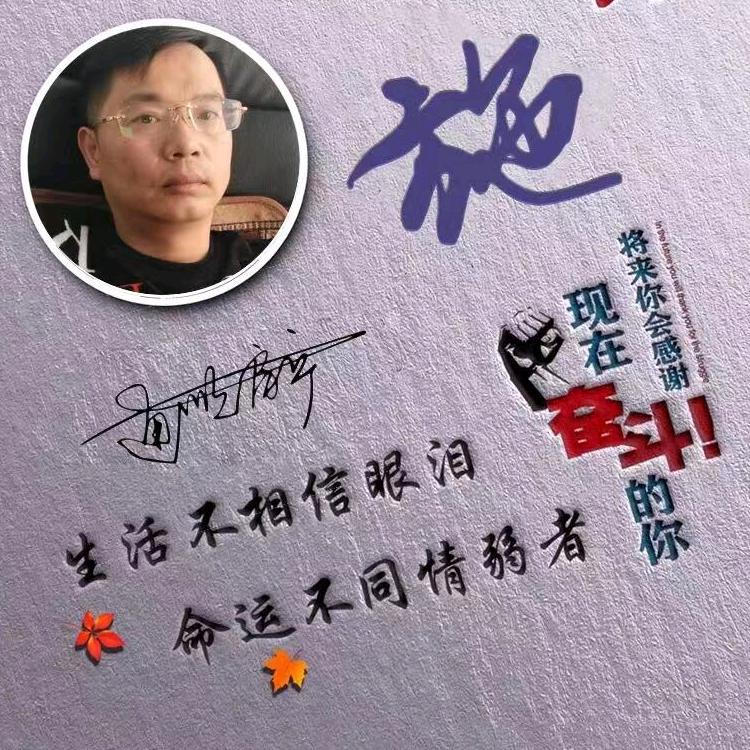 施
将来你会感谢
现在
奋斗!
的你
生活不相信眼泪
命运不同情弱者